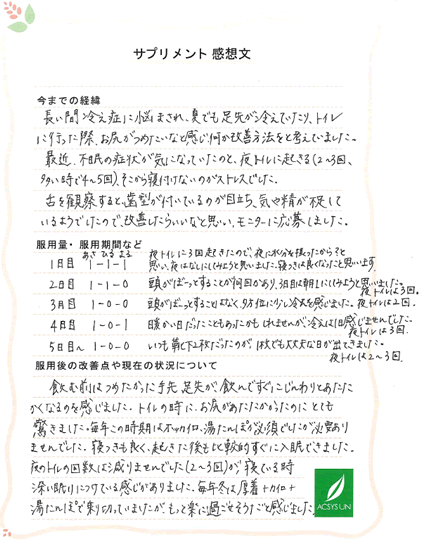 サプリメント 感想文
今までの経緯
長い間冷え症に悩まされ、夏でも足先が冷えていたり、トイレ
に行った際、お尻がつめたいなと感じ何か改善方法をと考えていました。
最近、不眠の症状が気になっていたのと、夜トイレに起きる(2〜3回、
多い時で4〜5回)、そこから寝付けないのがストレスでした。
舌を観察すると、歯型が付いているのが目立ち、気や精が不足して
いるようでしたので、改善したらいいなと思い、モニターに応募しました。
服用量・服用期間など
あさ ひる よる
1日目 1-1-1 夜トイレに3回起きたので、夜に水分を摂ったから?と
思い、夜はなしにしてみようと思いました。寝つきは良くなったと思います。
2日目 1-1-0 頭がぼーっとすることが何回かあり、3日目は朝1にしてみようと思いました。
夜トイレも3回。
3日目 1-0-0 頭がぼーっとすることはなく、夕方位に少し冷えを感じました。夜トイレは2回。
4日目 1-0-1 暖かい日だったこともあったかもしれませんが、冷えは1日感じませんでした。
夜トイレは3回。
5日目〜 1-0-0 いつも靴下2枚だったのが、1枚でも大丈夫な日が出てきました。
夜トイレは2〜3回
服用後の改善点や現在の状況について
飲む前はつめたかった手先、足先が、飲んですぐにじんわりとあたた
かくなるのを感じました。トイレの時に、お尻があたたかかったのにとても
驚きました。毎年この時期はホッカイロ、湯たんぽが必須でしたが必要あり
ませんでした。寝つきも良く、起きた後も比較的すぐに入眠できました。
夜のトイレの回数は減りませんでした(2〜3回)が、寝ている時
深い眠りにつけている感じがありました。毎年冬は厚着+カイロ+
湯たんぽで乗り切っていましたが、もっと楽に過ごせそうだなと感じました。
ACSYS UN